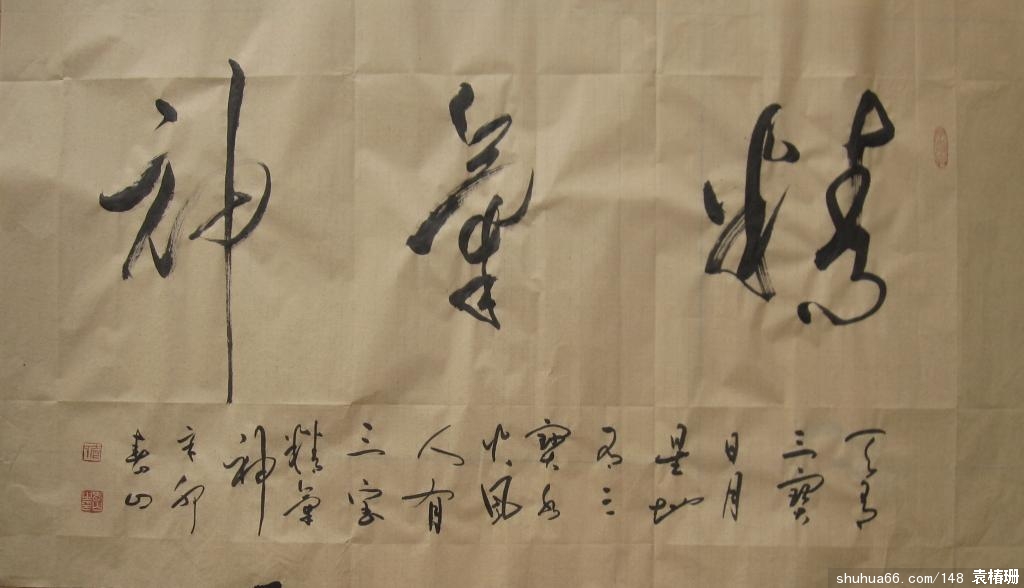 精氣神
天有
三寶
日月
星地
有三
寶水
火風
人有
三寶
精氣
神
辛卯
春山
shuhua66.com/148 袁椿珊